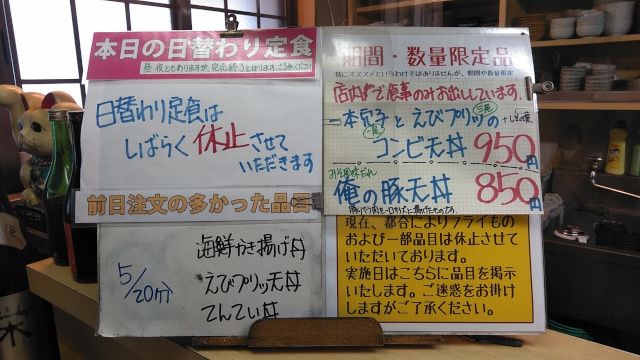 本日の日替わり定食
昼・夜ともありますが、完売終了となります。ご了承ください
日替わり定食は
しばらく休止させて
いただきます
前日注文の多かった品目
5/20分
海鮮かき揚げ丼
えびプリッ天丼
てんてい丼
期間・数量限定品
特にオススメというわけではありませんが、期間や数量限定
店内で食事のみお出ししています。
一本穴子とえびプリッの
一尾
三尾
+しその葉
コンビ天丼 950円
みそ風味だれ
俺の豚天丼 850円
現在、都合によりフライもの
および一部品目は休止させて
いただいております。
実施日はこちらに品目を掲示
いたします。ご迷惑をお掛け
しますがご了承ください。
栄